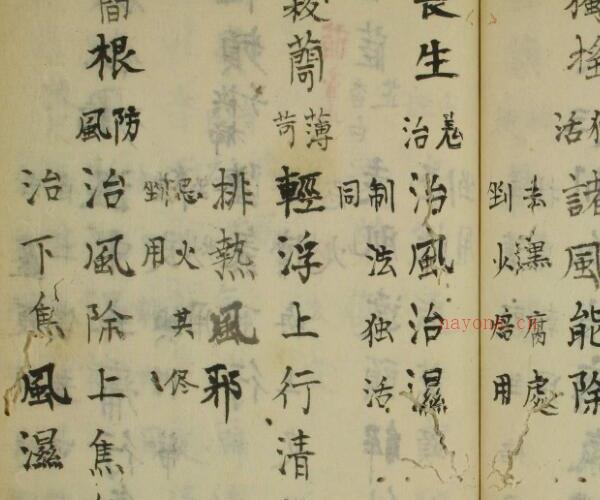 独活
諸風能除
去黒腐處
剉火焙用
長生
羌活
治風治濕
制法独活
同
薄荷
輕浮上行清
排熱風邪
忌火其侭
剉用
根
防風
治風除上焦
治下焦風濕
nayong.cn